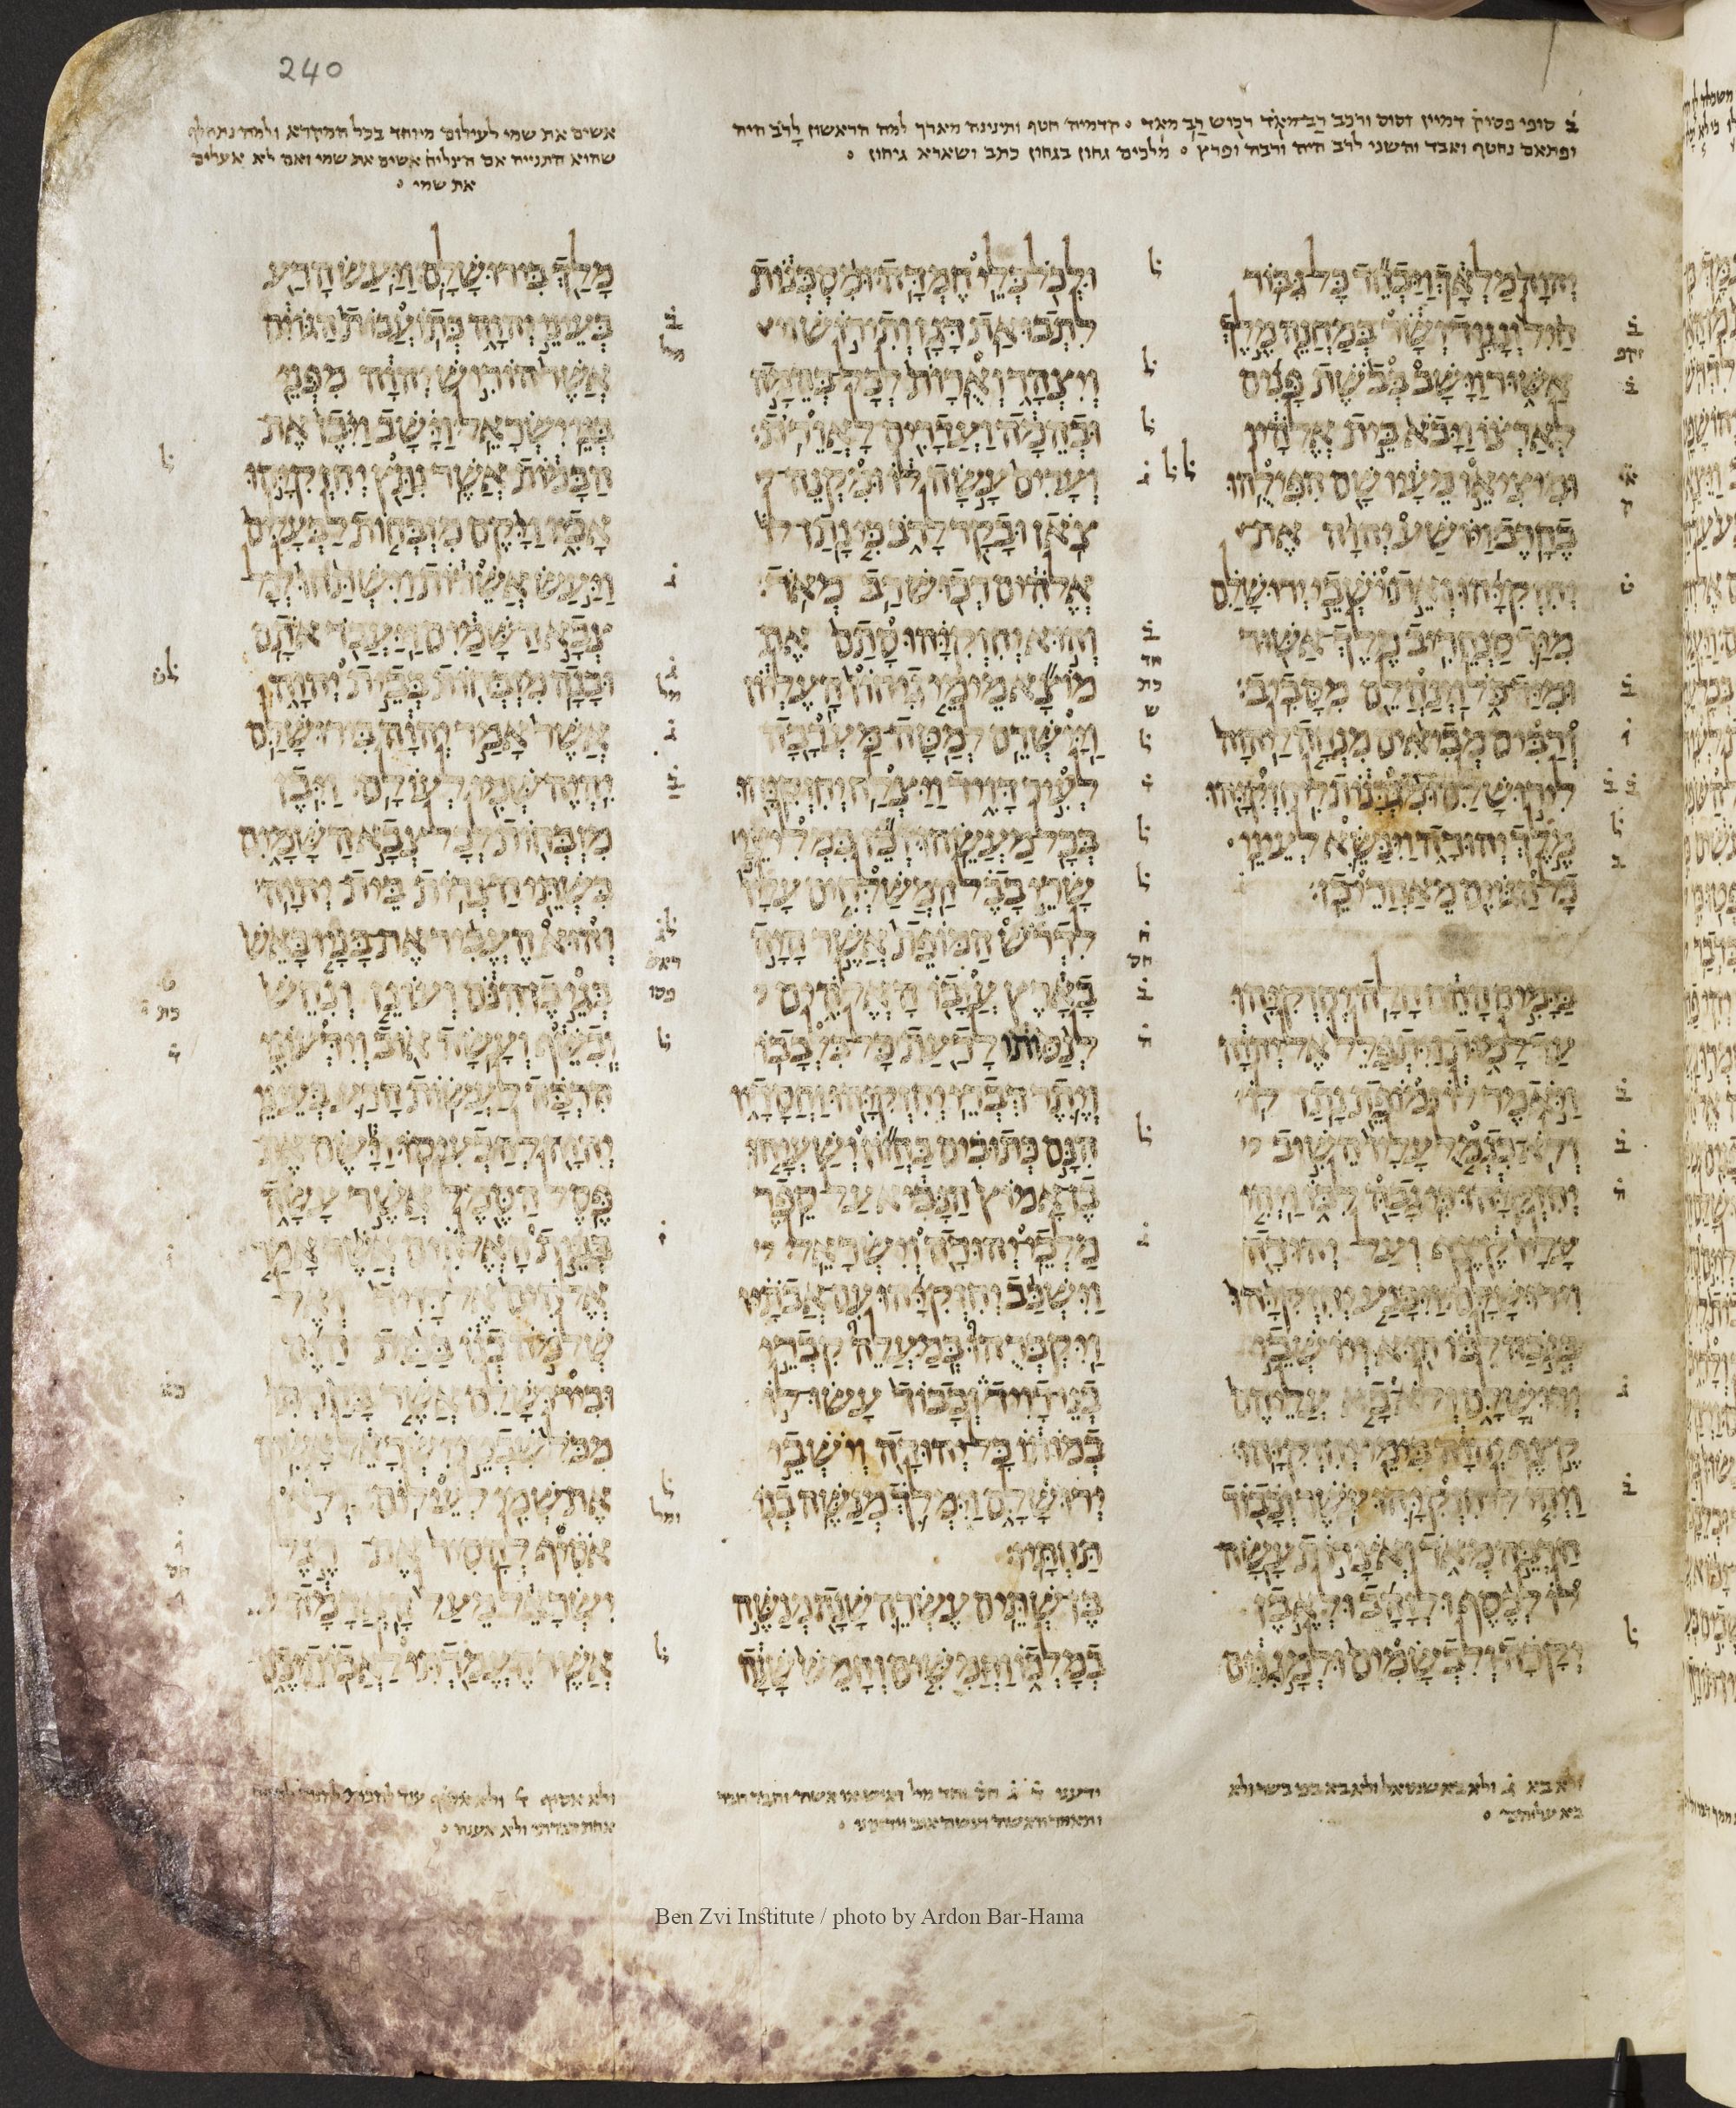 240
ב סופי פסוק דמיין וסוס ורכב רב מאד רכוש רב מאד ∘ קדמיה חטף ותינינה מארך למה הראשון לרב חיה
ופתאם נחטף ואבד והשני לרב היה ורבה ופרץ ∘ מלכים גחון בגחון כתב ושארא גיחון ∘
אשים את שמי לעילום מיוחד בכל המקרא ולמה נתחלף
שהוא התנייה אם הצליח אשים את שמי ואם לא אעלים
את שמי ∘
יהוה מלאך ויכחד כל גבור
חיל ונגיד ושר במחנה מלך
אשור וישב בבשת פנים
לארצו ויבא בית אלהיו
ומיציאו מעיו שם הפילהו
בחרב ויושע יהוה את
יחזקיהו ואת ישבי ירושלם
מיד סנחריב מלך אשור
ומיד כל וינהלם מסביב
ורבים מביאים מנחה ליהוה
לירושלם ומגדנות ליחזקיהו
מלך יהודה וינשא לעיני
כל הגוים מאחרי כן
בימים ההם חלה יחזקיהו
עד למות ויתפלל אל יהוה
ויאמר לו ומופת נתן לו
ולא כגמל עליו השיב
יחזקיהו כי גבה לבו ויהי
עליו קצף ועל יהודה
וירושלם ויכנע יחזקיהו
בגבה לבו הוא וישבי
ירושלם ולא בא עליהם
קצף יהוה בימי יחזקיהו
ויהי ליחזקיהו עשר וכבוד
הרבה מאד ואצרות עשה
לו לכסף ולזהב ולאבן
יקרה ולבשמים ולמגנים
ולכל כלי חמדה ומסכנות
לתבואת דגן ותירוש
ויצהר וארות לכל בהמה
ובהמה ועדרים לאורות
וערים עשה לו ומקנה
צאן ובקר לרב כי נתן לו
אלהים רכוש רב מאד
והוא יחזקיהו סתם את
מוצא מימי גיחון העליון
ויישרם למטה מערבה
לעיר דויד ויצלח יחזקיהו
בכל מעשהו וכן במליצי
שרי בבל המשלחים עליו
לדרש המופת אשר היה
בארץ עזבו האלהים
לנסותו לדעת כל בלבבו
ויתר דברי יחזקיהו וחסדיו
הנם כתובים בחזון ישעיהו
בן אמוץ הנביא על ספר
מלכי יהודה וישראל
וישכב יחזקיהו עם אבתיו
ויקברהו במעלה קברי
בני דויד וכבוד עשו לו
במותו כל יהודה וישבי
ירושלם וימלך מנשה בנו
תחתיו
בן שתים עשרה שנה מנשה
במלכו וחמשים וחמש שנה
מלך בירושלם ויעש הרע
בעיני יהוה כתועבות הגוים
אשר הוריש יהוה מפני
בני ישראל וישב ויבן את
הבמות אשר נתץ יחזקיהו
אביו ויקם מזבחות לבעלים
ויעש אשרות וישתחו לכל
צבא השמים ויעבד אתם
ובנה מזבחות בבית יהוה
אשר אמר יהוה בירושלם
יהיה שמי לעולם ויבן
מזבחות לכל צבא השמים
בשתי חצרות בית יהוה
והוא העביר את בניו באש
בגי בן הנם ועונן ונחש
וכשף ועשה אוב וידעוני
הרבה לעשות הרע בעיני
יהוה להכעיסו וישם את
פסל הסמל אשר עשה
בבית האלהים אשר אמר
אלהים אל דויד ואל
שלמה בנו בבית הזה
ובירושלם אשר בחרתי
מכל שבטי ישראל אשים
את שמי לעילום ולא
אסיף להסיר את רגל
ישראל מעל האדמה
אשר העמדתי לאבתיכם
ולא בא ג ולא בא שמואל ולא בא בשר ולא
ולא אסיף ד ולא אסיף עוד
Ben Zvi Institute / photo by Ardon Bar-Hama